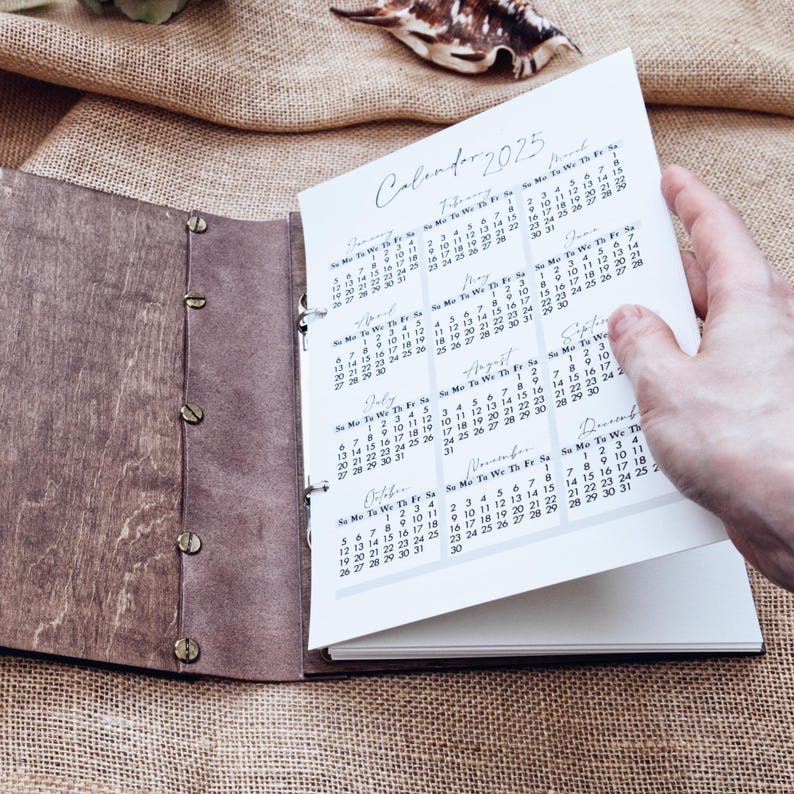 Calendar 2025
January
Su Mo Tu We Th Fr Sa
1 2 3 4
5 6 7 8 9 10 11
12 13 14 15 16 17 18
19 20 21 22 23 24 25
26 27 28 29 30 31
February
Su Mo Tu We Th Fr Sa
1
2 3 4 5 6 7 8
9 10 11 12 13 14 15
16 17 18 19 20 21 22
23 24 25 26 27 28
March
Su Mo Tu We Th Fr Sa
1
2 3 4 5 6 7 8
9 10 11 12 13 14 15
16 17 18 19 20 21 22
23 24 25 26 27 28 29
30 31
April
Su Mo Tu We Th Fr Sa
1 2 3 4 5
6 7 8 9 10 11 12
13 14 15 16 17 18 19
20 21 22 23 24 25 26
27 28 29 30
May
Su Mo Tu We Th Fr Sa
1 2 3
4 5 6 7 8 9 10
11 12 13 14 15 16 17
18 19 20 21 22 23 24
25 26 27 28 29 30 31
June
Su Mo Tu We Th Fr Sa
1 2 3 4 5 6 7
8 9 10 11 12 13 14
15 16 17 18 19 20 21
22 23 24 25 26 27 28
29 30
July
Su Mo Tu We Th Fr Sa
1 2 3 4 5
6 7 8 9 10 11 12
13 14 15 16 17 18 19
20 21 22 23 24 25 26
27 28 29 30 31
August
Su Mo Tu We Th Fr Sa
1 2
3 4 5 6 7 8 9
10 11 12 13 14 15 16
17 18 19 20 21 22 23
24 25 26 27 28 29 30
31
Septe
Su Mo Tu
1 2
7 8 9
14 15 16
21 22 23
28 29 30
October
Su Mo Tu We Th Fr Sa
1 2 3 4
5 6 7 8 9 10 11
12 13 14 15 16 17 18
19 20 21 22 23 24 25
26 27 28 29 30 31
November
Su Mo Tu We Th Fr Sa
1
2 3 4 5 6 7 8
9 10 11 12 13 14 15
16 17 18 19 20 21 22
23 24 25 26 27 28 29
30
Decembe
Su Mo Tu We Th
1 2 3 4
7 8 9 10 11
14 15 16 17 18
21 22 23 24 25
28 29 30 31